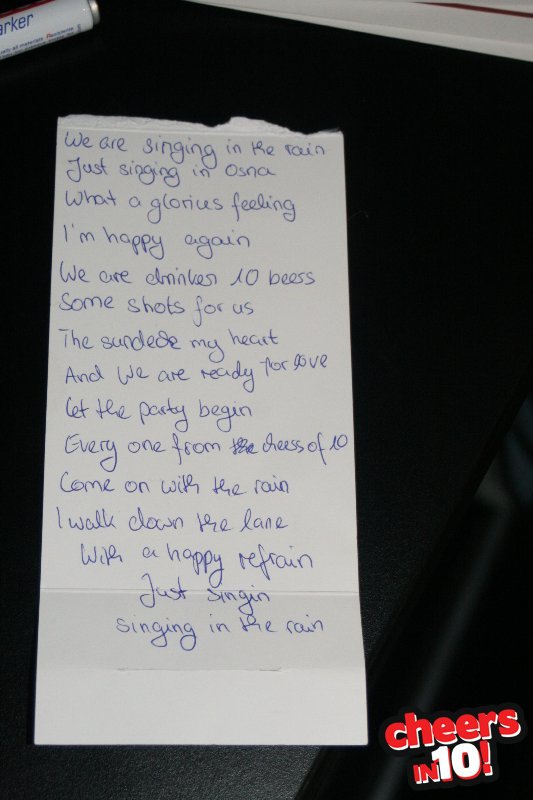 arker
ually all materials
We are singing in the rain
Just singing in Osna
What a glorius feeling
I'm happy again
We are drinken 10 beers
Some shots for us
The my heart
And We are ready for love
Let the party begin
Every one from the cheers of 10
Come on with the rain
I walk down the lane
With a happy refrain
Just singin
singing in the rain
cheers
IN 10!